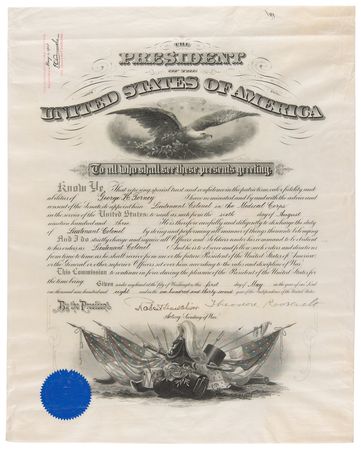 THE
PRESIDENT
OF THE
UNITED STATES OF AMERICA
To all who shall see these presents greeting:
Know Ye, That reposing special trust and confidence in the patriotism, valor, fidelity and
abilities of George H. Torney I have nominated and by and with the advice and
consent of the Senate do appoint him Lieutenant Colonel in the Medical Corps
in the service of the United States: to rank as such from the sixth day of August
nineteen hundred and three. He is therefore carefully and diligently to discharge the duty
of Lieutenant Colonel by doing and performing all manner of things thereunto belonging.
And I do strictly charge and require all Officers and Soldiers under his command to be obedient
to his orders as Lieutenant Colonel And he is to observe and follow such orders and directions
from time to time as he shall receive from me or the future President of the United States of America
or the General or other superior Officers set over him, according to the rules and discipline of War.
This Commission to continue in force during the pleasure of the President of the United States for
the time being.
Given under my hand at the City of Washington, this first day of May in the year of our Lord
one thousand nine hundred and eight and in the one hundred and thirty second year of the Independence of the United States.
By the President,
Theodore Roosevelt
Robert Shaw Oliver
Acting Secretary of War.